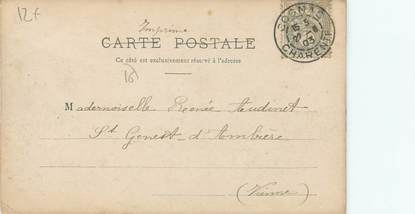 12f
Imprimé
CARTE POSTALE
Ce côté est exclusivement réservé à l'adresse
(16)
COGNAC
03
CHARENTE
Mademoiselle Renée Audinet
St Genest-d'Ambière
(Vienne)